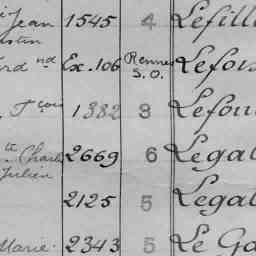 Jean 1545 4 Lefill
ustin
rd nd Ex. 106 Rennes S.O. Lefou
Fçois 1382 3 Lefou
te Charl 2669 6 Legal
Julien
2125 5 Legal
Marie. 2343 5 Le Ga